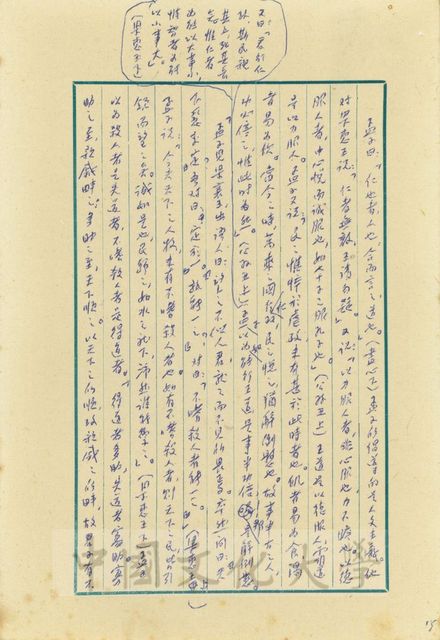 孟子曰:「仁也者,人也,合而言之,道也。」(盡心下)孟子所倡導的是人文主義。他
對梁惠王說:「仁者無敵,王請勿疑」又說:「以力服人者,非心服也,力不贍也,以德
服人者,中心悅而誠服也,如七十子之服孔子也」。(公孫丑上)王道是以德服人,霸道
是以力服人。孟子又說:「民之憔悴於虐政,未有甚於此時者也。飢者易為食,渴
者易為飲。當今之時,萬乘之國行仁政,民之悅之,猶解倒懸也。故事半古之人,
功必倍之,惟此時為然」。(公孫丑上)孟子以為能行王道,是事半功倍 解倒懸
又曰:「君行仁
政,斯民親
其上,死其長
矣。惟仁者
為能以大事小,
惟智者為能
以小事大」。
(梁惠王下)
孟子見梁襄王,出語人曰:「望之不似人君,就之而不見所畏焉。卒然問曰:天
下惡乎定?吾對曰:定於一。孰能一之?對曰:不嗜殺人者能一之。」(梁惠王上)
孟子說:「今夫天下之人牧,未有不嗜殺人者也,如有不嗜殺人者,則天下之民皆引
領而望之矣。誠如是也,民歸之,如水之就下,沛然誰能禦之」。
以為殺人者是失道者,不嗜殺人者是得道者。「得道者多助,失道者寡助。寡
助之至,親戚畔之;多助之至,天下順之。以天下之所順,攻親戚之所畔,故君子有不
15
中國文化大學